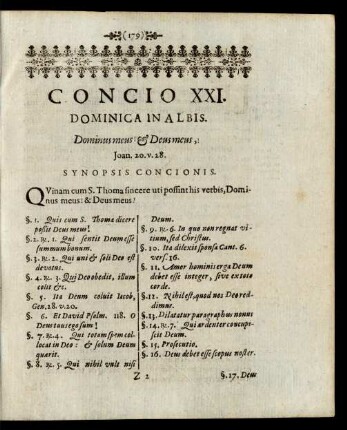 (179)
CONCIO XXI.
DOMINICA IN ALBIS.
Dominus meus: & Deus meus,:
Joan. 20. v. 28.
SYNOPSIS CONCIONIS.
QVinam cum S. Thoma sincere uti possint his verbis, Domi-
nus meus: & Deus meus?
§. 1. Quis cum S. Thoma dicere
possit Deus meus?
§. 2. №. 1. Qui sentit Deum esse
summum bonum.
§. 3. №. 2. Qui uni & soli Deo est
devotus.
§. 4. №. 3. Qui Deo obedit, illum
colit &c.
§. 5. Ita Deum coluit Iacob,
Gen. 28. v. 20.
§. 6. Et David Psalm. 118. O
Deus tuus ego sum!
§. 7. №. 4. Qui totam spem col-
locat in Deo: & solum Deum
quærit.
§. 8. №. 5. Qui nihil vult nisi
Deum.
§. 9. №. 6. In quo non regnat vi-
tium, sed Christus.
§. 10. Ita dilexit sponsa Cant. 6.
vers. 16.
§. 11. Amor hominis erga Deum
debet esse integer, sive ex toto
corde.
§. 12. Nihil est, quod nos Deo red-
dimus.
§. 13. Dilatatur paragraphus nonus
§. 14. №. 7. Qui ardenter concupi-
scit Deum.
§. 15. Prosecutio.
§. 16. Deus debet esse scopus noster.
Z 2
§. 17. Deus